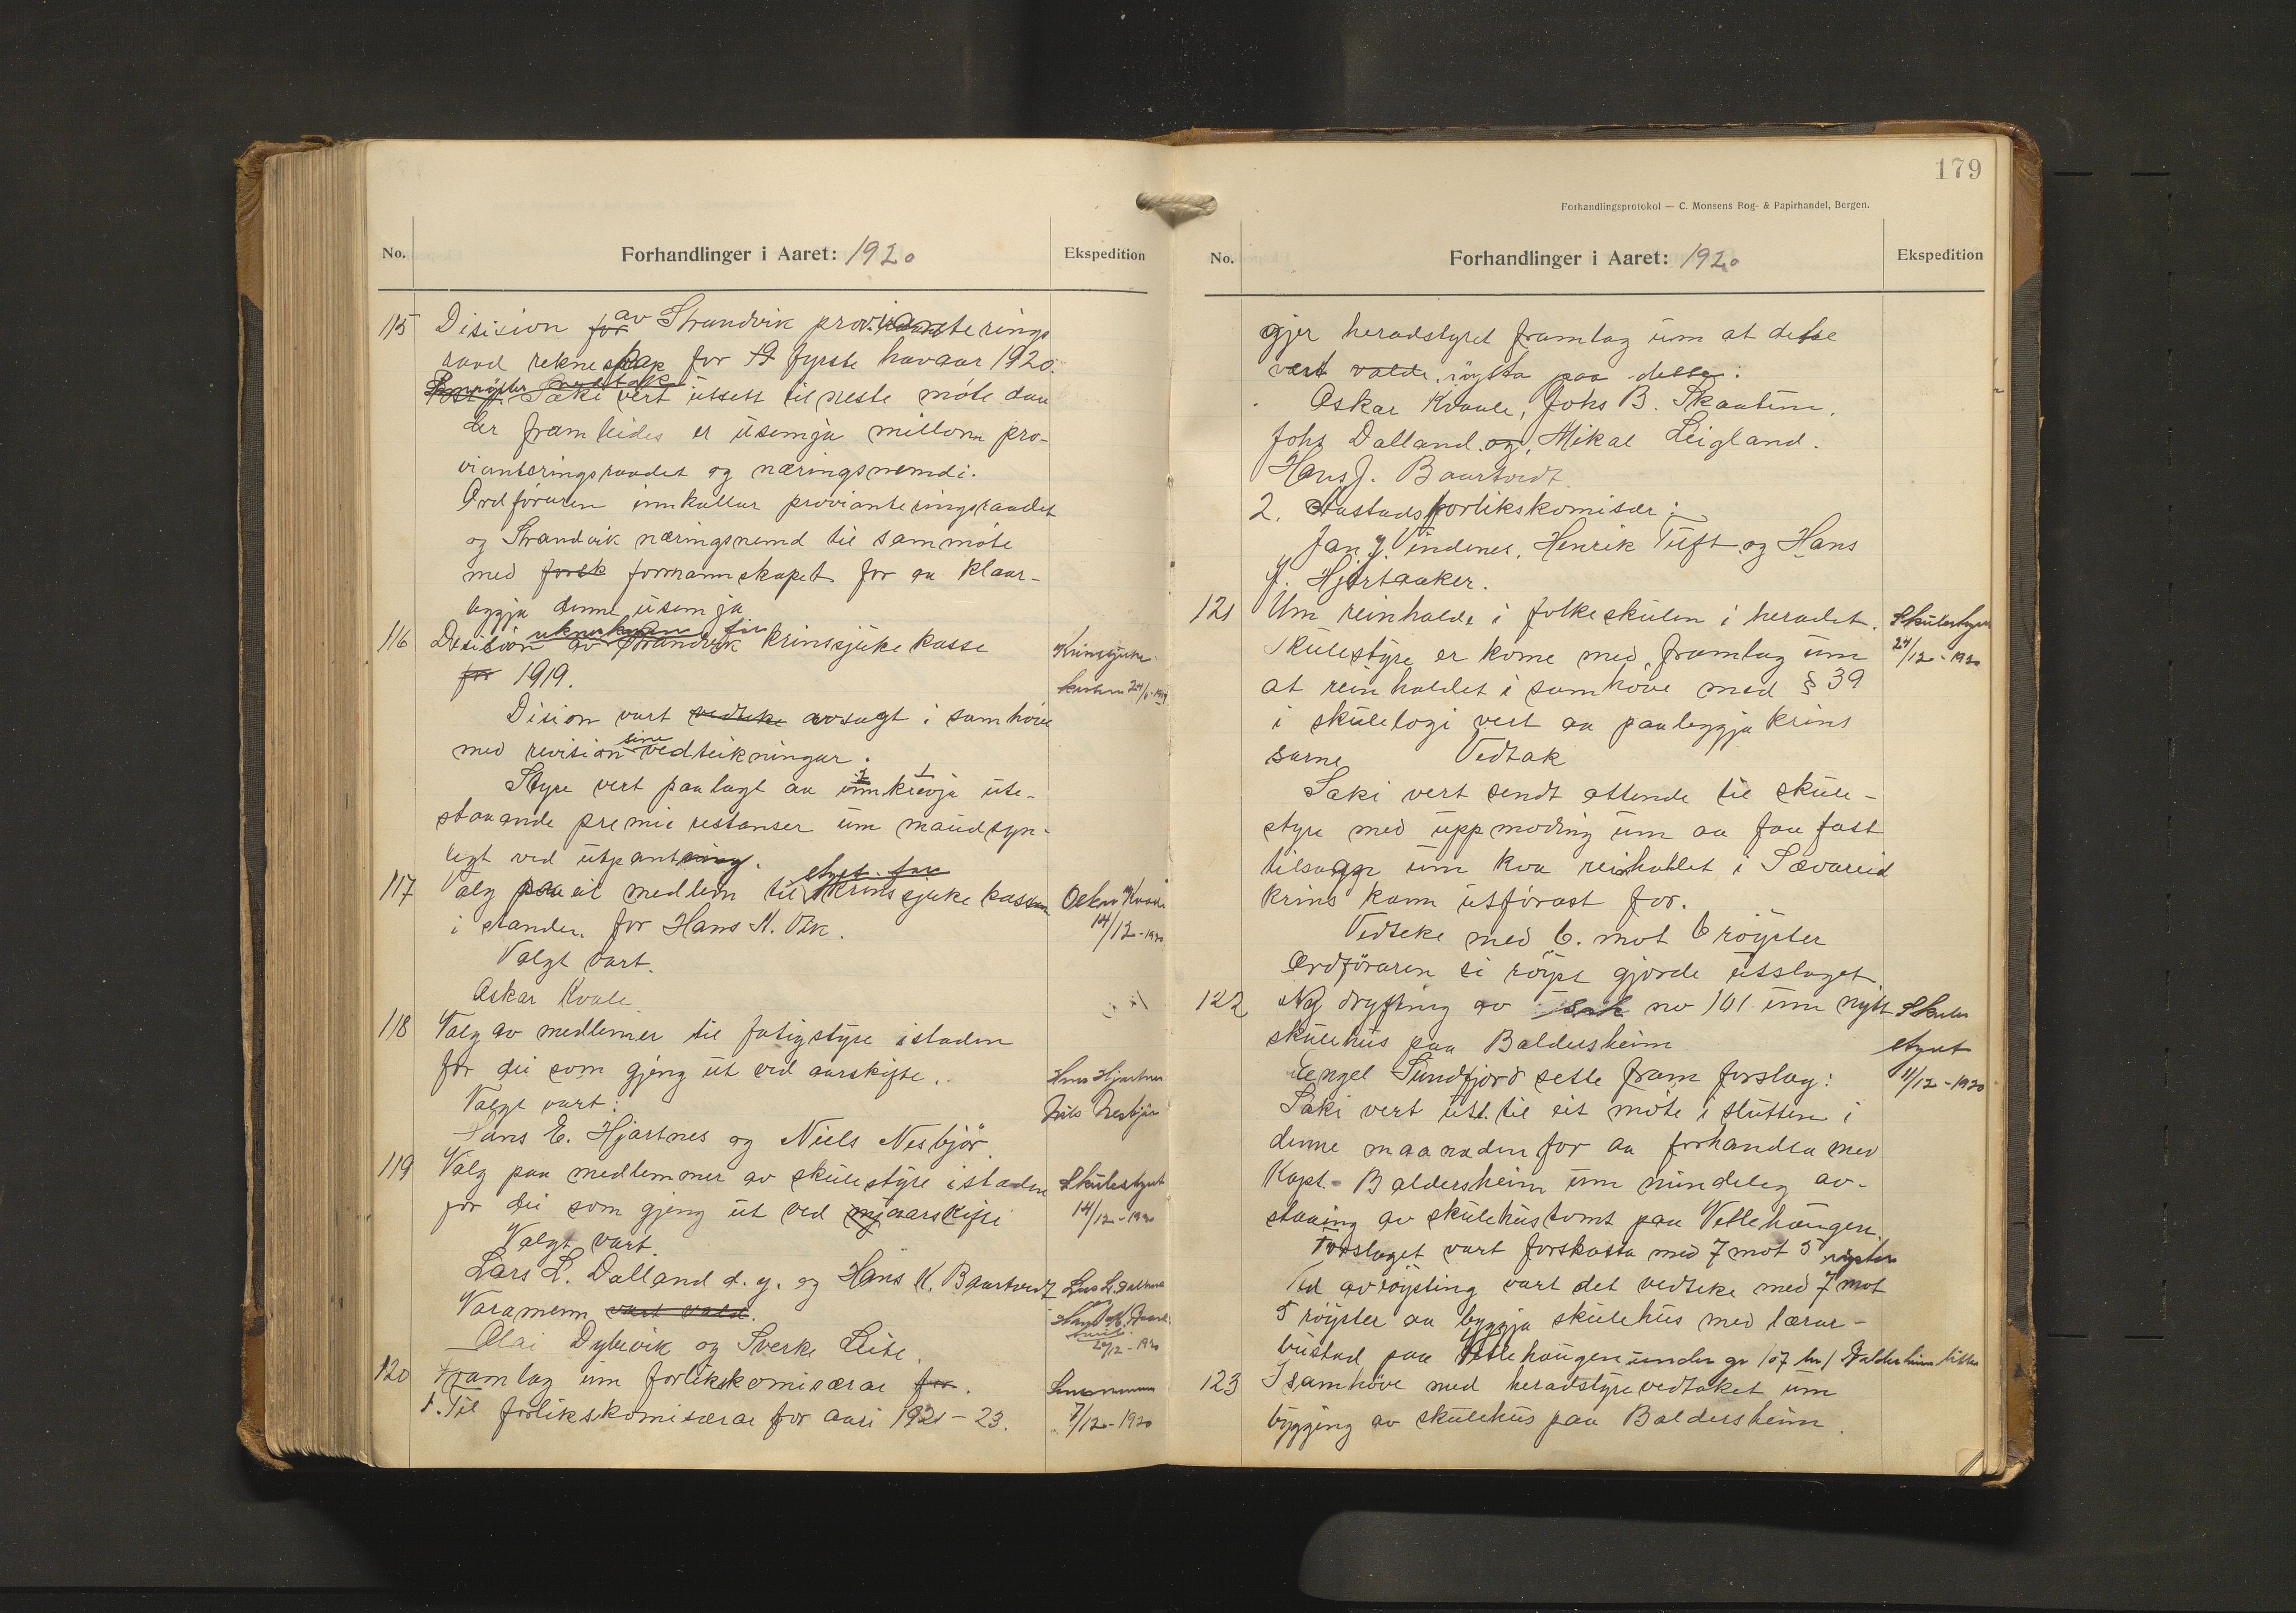 No.
Forhandlinger i Aaret: 1920
Ekspedition
115 Disision for av Strandvik provianterings
raad rekneskap for 19 fyrste havaar 1920.
Saki vert utsett til neste møte daa
der framleides er usemja millom pro-
vianteringsraadet og næringsnemdi.
Ordføraren innkallar provianteringsraadet
og Strandvik næringsnemd til sammøte
med forsk formannskapet for aa klaar-
leggja denne usemja
116 Desision av Strandvik krinssjukekasse
for 1919.
Krinssjuke-
kassen 24/
Dision vart vedteke avsagt i samhøve
med revision sine vedteikningar.
Styre vert paalagt aa innkrevja ute-
staaande premie restanser um naudsyn-
legt ved utpantning.
117 Valg paa eit medlem til styret for krinssjukekassen
i standen for Hans N. Vik.
Valgt vart.
Askar Kvale
Oskar Kvale
14/12-1920
118 Valg av medlemer til fatigstyre istaden
for dei som gjeng ut ved aarskifte.
Valgt vart:
Hans E. Hjartnes og Niels Nesbjør.
Hans Hjartnes
Nils Nesbjør
119 Valg paa medlemmer av skulestyre istaden
for dei som gjeng ut ved nyaarskifte
Valgt vart.
Lars L. Dalland d. y. og Hans K. Baartvedt
Varamenn vart vald.
Olai Dybevik og Sverke Leite.
Skulestyret
14/12-1920
Lars L. Dalland
og
20/12-1920
120 Framlag um forlikskomisærar for.
1. Til forlikskomisærar for aari 1921-23.
7/12-1920
179
Forhandlingsprotokol — C. Monsens Bog- & Papirhandel, Bergen.
No.
Forhandlinger i Aaret: 1920
Ekspedition
gjer heradstyret framlag um at desse
vert valde, røysta paa desse:
Askar Kvaale, Johs B. Skaatun,
Johs Dalland og, Mikal Leigland.
Hans J. Baartvedt
2. forlikskomisær:
Jan J. Vindenes, Henrik Tuft og Hans
J. Hjartaaker.
121 Um reinhalde i folkeskulen i heradet.
Skulestyre er kome med framlag um
at reinhaldet i samhøve med § 39
i skulelogi vert aa paaleggja krins
sarne
Vedtak
Skulestyre
24/12-1920
Saki vert sendt attende til skule-
styre med uppmoding um aa faa fast
tilsagn um kva reinhaldet i Sævareid
krins kann utførast for.
Vedteke med 6. mot 6 røyster
Ordføraren si røyst gjorde utslaget
122 Ny drøfting av sak no 101 um nytt
skulehus paa Baldersheim
Skule
styret
11/12-1920
Engel Sundfjord sette fram forslag:
Saki vert uts. til eit møte i slutten i
denne maanaden for aa forhandla med
Kapt. Baldersheim um mindeleg av-
staaing av skulehustomt paa Vetlehaugen.
Forslaget vart forkasta med 7 mot 5 røyster
Ved avrøysting vart det vedteke med 7 mot
5 røyster aa byggja skulehus med lærar-
bustad paa Vetlehaugen under gr 107 br 1 Baldersheim
123 I samhøve med heradstyrevedtaket um
bygging av skulehus paa Baldersheim.